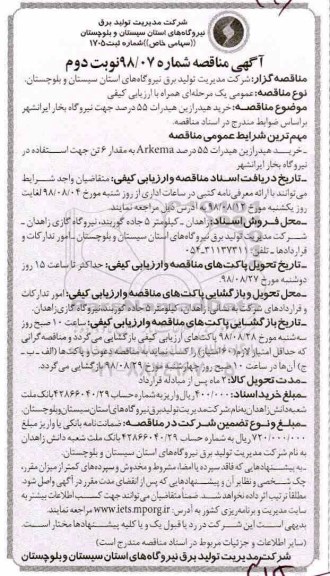 شرکت مدیریت تولید برق
نیروگاه‌های استان سیستان و بلوچستان
((سهامی خاص)) شماره ثبت ۱۷۰۵
آگهی مناقصه شماره ۹۸/۰۷ نوبت دوم
مناقصه گزار: شرکت مدیریت تولید برق نیروگاه‌های استان سیستان و بلوچستان.
نوع مناقصه: عمومی یک مرحله‌ای همراه با ارزیابی کیفی
موضوع مناقصه: خرید هیدرازین هیدرات ۵۵ درصد جهت نیروگاه بخار ایرانشهر
براساس ضوابط مندرج در اسناد مناقصه.
مهم‌ترین شرایط عمومی مناقصه
-خرید هیدرازین هیدرات ۵۵ درصد Arkema به مقدار ۶ تن جهت استفاده در
نیروگاه بخار ایرانشهر
-تاریخ دریافت اسناد مناقصه و ارزیابی کیفی: متقاضیان واجد شرایط
می‌توانند با ارائه معرفی‌نامه کتبی در ساعات اداری از روز شنبه مورخ ۹۸/۰۸/۰۴ لغایت
روز یکشنبه مورخ ۹۸/۰۸/۱۲ به آدرس ذیل مراجعه نمایند.
-محل فروش اسناد: زاهدان - کیلومتر ۵ جاده گوربند، نیروگاه گازی زاهدان -
شرکت مدیریت تولید برق نیروگاه‌های استان سیستان و بلوچستان - امور تدارکات و
قراردادها - تلفن: ۳۱۱۳۷۳۱۱-۰۵۴
-تاریخ تحویل پاکت‌های مناقصه و ارزیابی کیفی: حداکثر تا ساعت ۱۵ روز
دوشنبه مورخ ۹۸/۰۸/۲۷.
-محل تحویل و بازگشایی پاکت‌های مناقصه و ارزیابی کیفی: امور تدارکات
و قراردادهای شرکت به نشانی زاهدان، کیلومتر ۵ جاده گوربند، نیروگاه گازی زاهدان.
-تاریخ بازگشایی پاکت‌های مناقصه و ارزیابی کیفی: ساعت ۱۰ صبح روز
سه‌شنبه مورخ ۹۸/۰۸/۲۸ پاکت‌های ارزیابی کیفی بازگشایی می‌گردد و مناقصه‌گرانی
که حداقل امتیاز لازم (۶۰ امتیاز) را کسب نمایند به مناقصه دعوت و پاکت‌ها (الف - ب -
ج) آن‌ها در ساعت ۱۰ صبح روز چهارشنبه مورخ ۹۸/۰۸/۲۹ بازگشایی می‌گردد.
-مدت تحویل کالا: ۲ ماه پس از مبادله قرارداد
-مبلغ خرید اسناد: ۴۰۰/۰۰۰ ریال واریز به حساب ۴۲۸۶۶۰۴۰/۲۹ بانک ملت
شعبه دانش زاهدان به نام شرکت مدیریت تولید برق نیروگاه‌های استان سیستان و بلوچستان.
-مبلغ و نوع تضمین شرکت در مناقصه: ضمانت‌نامه بانکی یا واریز مبلغ
۷۲۰/۰۰۰/۰۰۰ ریال به شماره حساب ۴۲۸۶۶۰۴۰/۲۹ بانک ملت شعبه دانش زاهدان
به نام شرکت مدیریت تولید برق نیروگاه‌های استان سیستان و بلوچستان.
-به پیشنهادهایی که فاقد سپرده یا امضا، مشروط و مخدوش و سپرده‌های کمتر از میزان مقرر،
چک شخصی و نظایر آن و پیشنهادهایی که پس از انقضای مدت مقرر در آگهی واصل شود،
مطلقاً ترتیب اثر داده نخواهد شد. ضمناً متقاضیان می‌توانند جهت کسب اطلاعات بیشتر به
سایت مدیریت و برنامه‌ریزی کشور به آدرس: www.iets.mporg.ir مراجعه نمایند.
بدیهی است این شرکت در رد یا قبول یک و یا کلیه پیشنهادها مختار است.
(سایر اطلاعات و جزئیات مربوط در اسناد مناقصه مندرج است)
شرکت مدیریت تولید برق نیروگاه‌های استان سیستان و بلوچستان